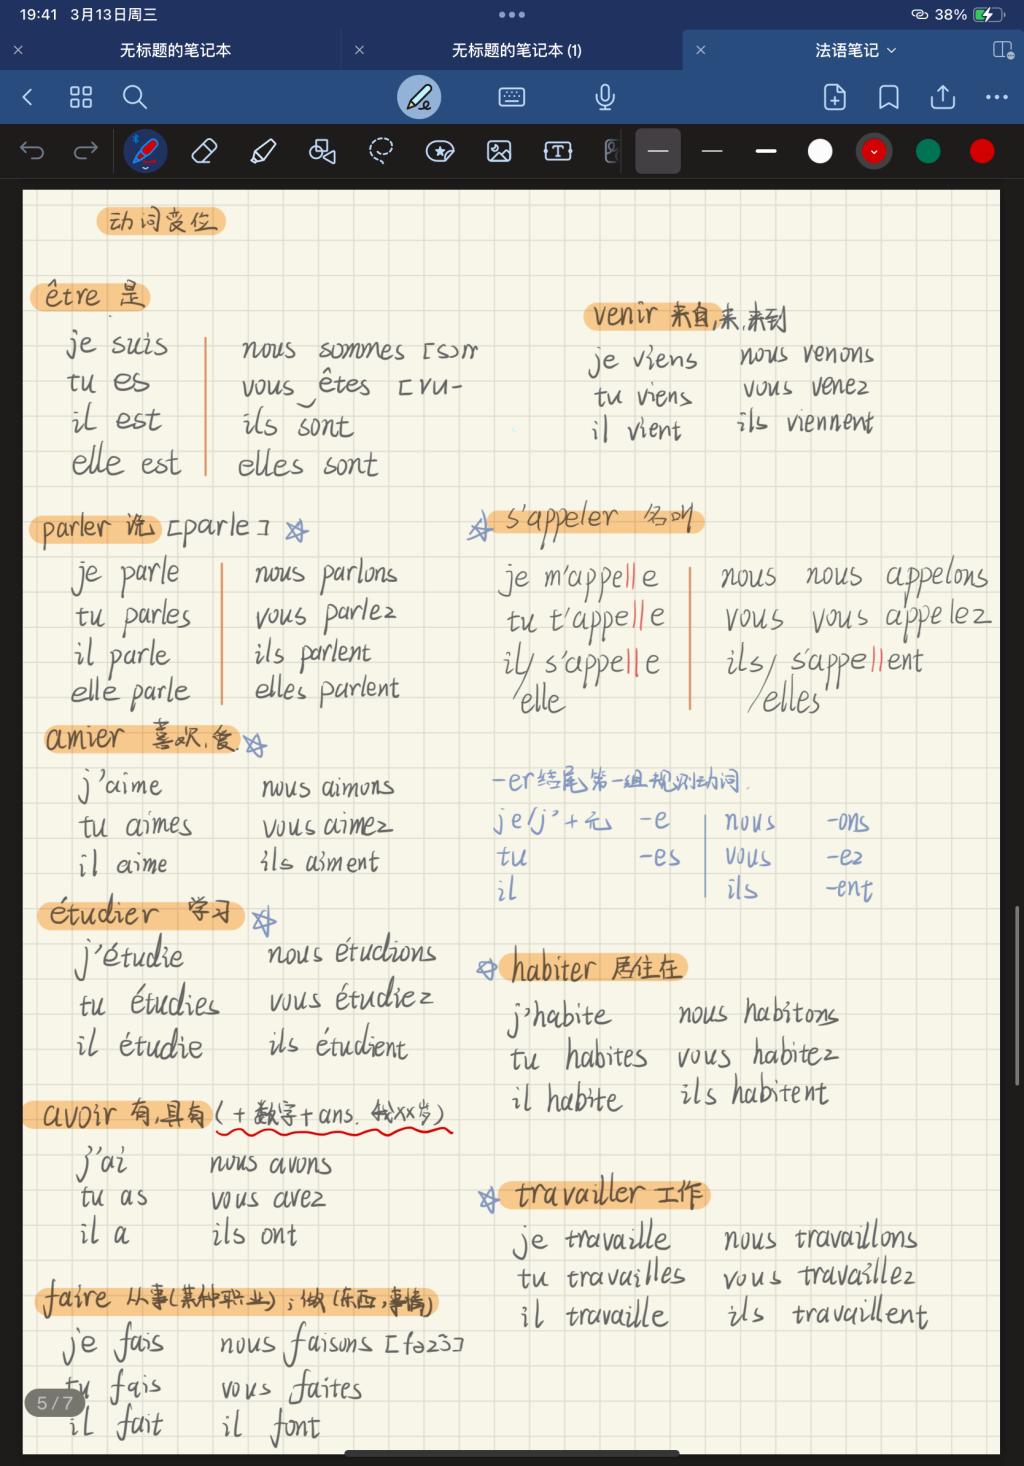 19:41 3月13日周三
38%
无标题的笔记本
无标题的笔记本 (1)
法语笔记
动词变位
être 是
je suis
tu es
il est
elle est
nous sommes [sɔm
vous êtes [vu-
ils sont
elles sont
venir 来自,来,来到
je viens
tu viens
il vient
nous venons
vous venez
ils viennent
parler 说 [parle]
je parle
tu parles
il parle
elle parle
nous parlons
vous parlez
ils parlent
elles parlent
s'appeler 名叫
je m'appelle
tu t'appelle
il/ s'appelle
elle
nous nous appelons
vous vous appelez
ils/ s'appellent
elles
amier 喜欢,爱
j'aime
tu aimes
il aime
nous aimons
vous aimez
ils aiment
-er结尾第一组规则动词.
je/j'+元 -e
tu -es
il
nous -ons
vous -ez
ils -ent
étudier 学习
j'étudie
tu étudies
il étudie
nous étudions
vous étudiez
ils étudient
habiter 居住在
j'habite
tu habites
il habite
nous habitons
vous habitez
ils habitent
avoir 有,具有 (+数字+ans. 我xx岁)
j'ai
tu as
il a
nous avons
vous avez
ils ont
travailler 工作
je travaille
tu travailles
il travaille
nous travaillons
vous travaillez
ils travaillent
faire 从事(某种职业);做(东西,事情)
je fais
tu fais
il fait
nous faisons [fəzɔ̃]
vous faites
il font
5 / 7